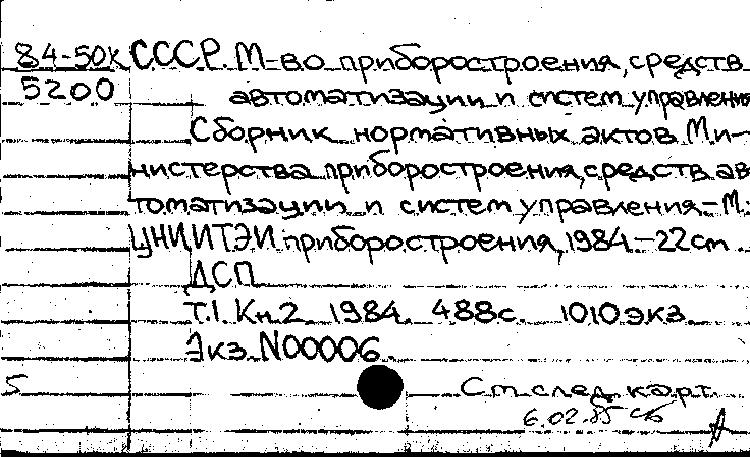 84-50к СССР. М-во приборостроения, средств
5200 автоматизации и систем управления
Сборник нормативных актов Ми-
нистерства приборостроения, средств ав-
томатизации и систем управления.-М.:
ЦНИИТЭИ приборостроения, 1984.-22см
ДСП
Т.1. Кн.2 1984. 488с. 1010 экз
Экз. N00006
5 См след. карт.
6.02.85